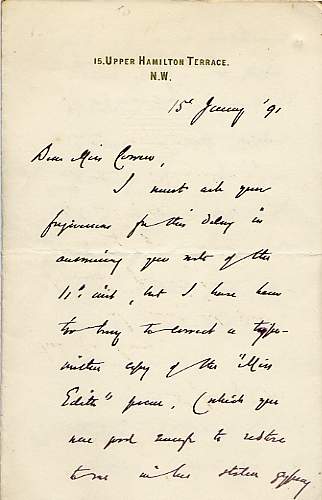 15. UPPER HAMILTON TERRACE.
N.W.
15th Jany '91
Dear Miss
I must ask your
forgiveness for this delay in
answering your note of the
11th inst, but I have been
too busy to correct a type-
written copy of the "Miss
Edith" poem, (which you
were good enough to restore
to me in her stolen gypsy